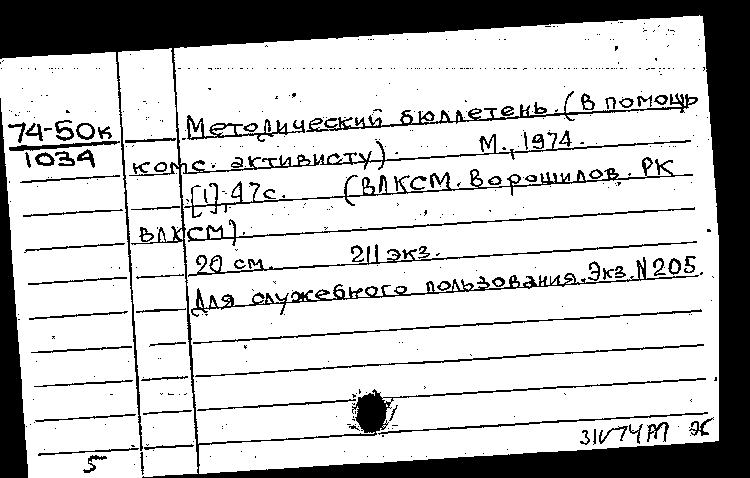 74-50к
1034
Методический бюллетень. (В помощь
комс. активисту). М., 1974.
[1], 47с. (ВЛКСМ. Ворошилов. РК
ВЛКСМ).
20 см. 211 экз.
Для служебного пользования. Экз. N 205.
5